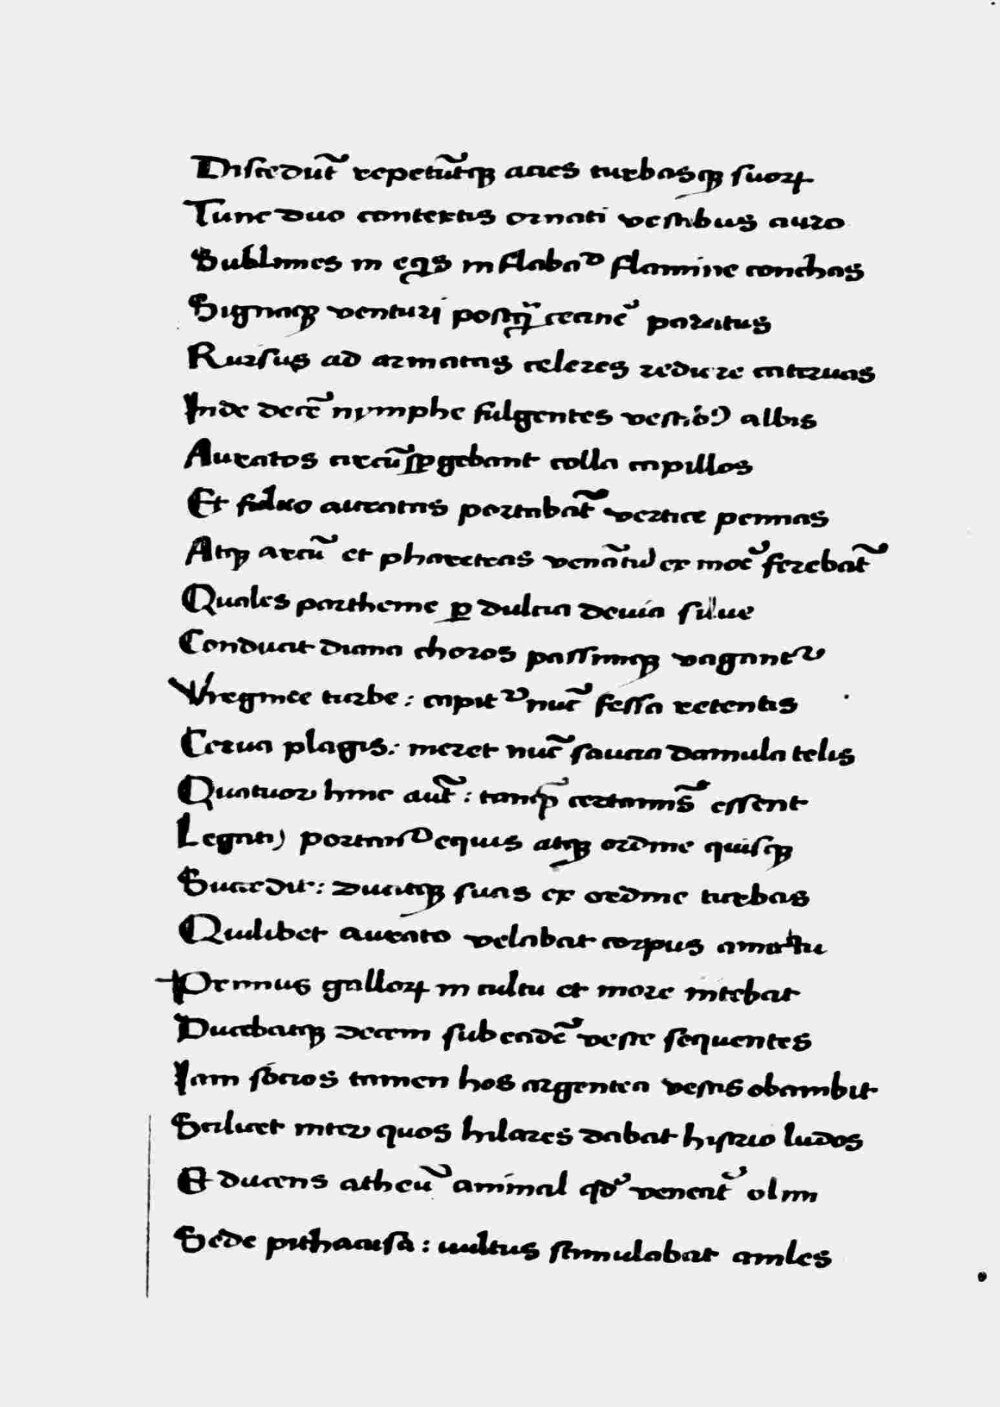 Discedūt̃ repetūtqꝫ acies turbasqꝫ suoꝝ
Tunc duo contextis ornati vestibus auro
Sublimes in eqͥs inflabād flamine conchas
Signaqꝫ venturi postꝗ̃ cecinē paratus
Rursus ad armatas celeres redire catervas
Inde decē nymphe fulgentes vestibꝰ albis
Auratos circū spgebant colla capillos
Et fuluo auratas portabāt vertice pennas
Atqꝫ arcū et pharetras venātū ex mōe ferebāt
Quales parthenie ꝑ dulcia devia silue
Conducit diana choros passimqꝫ vagant᷑
Virginee turbe : capit᷑ nūc fessa retentis
Cerva plagis : meret nūc saucia damula telis
Quatuor hinc aūt : tanꝗ̃ certaminis essent
Legati) portand equis atqꝫ ordine quisqꝫ
Succedit : ducitqꝫ suas ex ordine turbas
Quilibet aurato velabat corpus amictu
Primus galloꝝ in cultu et more nitebat
Ducebatqꝫ decem sub eadē veste sequentes
Iam socios tamen hos argentea vestis obambit
Scilicet inter quos hilares dabat histrio ludos
Et ducens athcū animal qd' veneāt olim
Sede pithacusa : uultus simulabat aniles